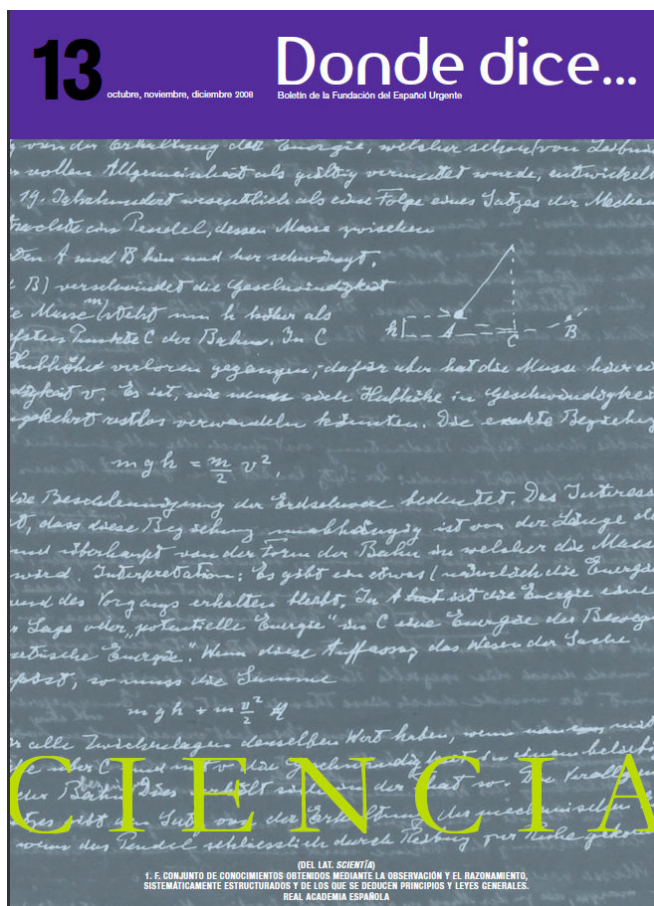 13
octubre, noviembre, diciembre 2008
Donde dice...
Boletín de la Fundación del Español Urgente
von der Erhaltung der Energie, welcher schon von
vollen Allgemeinheit als gültig vermutet wurde, entwickelt
19. Jahrhundert wesentlich als eine Folge eines Satzes der Mechan
ein Pendel, dessen Masse zwischen
A und B hin und her schwingt.
B) verschwindet die Geschwindigkeit
Masse m steht um h höher als
Punkte C der Bahn. In C
h A C B
Hubhöhe verloren gegangen; dafür aber hat die Masse hier
digkeit v. Es ist, wie wenn sich Hubhöhe in Geschwindigkei
gekehrt restlos verwandeln könnten. Die exakte Beziehung
mgh = m/2 v²,
die Beschleunigung der Erdschwere bedeutet. Das Interess
dass diese Beziehung unabhängig ist von der Länge
und überhaupt von der Form der Bahn in welcher die Masse
wird. Interpretation: Es gibt ein etwas (nämlich die Energie
und des Vorgangs erhalten bleibt. In A ist die Energie eine
Lage oder „potentielle Energie" in C eine Energie der Beweg
Energie". Wenn diese Auffassung das Wesen der Sache
so muss die Summe
mgh + m v²/2
alle Zwischenlagen denselben Wert haben, wenn man
über C und mit v die Geschwindigkeit in einem
der Bahn Dies verhält sich in der That so. Die
gibt den Satz von der Erhaltung der mechanischen
wenn das Pendel schliesslich durch Reibung zur Ruhe
CIENCIA
(DEL LAT. SCIENTĬA)
1. F. CONJUNTO DE CONOCIMIENTOS OBTENIDOS MEDIANTE LA OBSERVACIÓN Y EL RAZONAMIENTO,
SISTEMÁTICAMENTE ESTRUCTURADOS Y DE LOS QUE SE DEDUCEN PRINCIPIOS Y LEYES GENERALES.
REAL ACADEMIA ESPAÑOLA